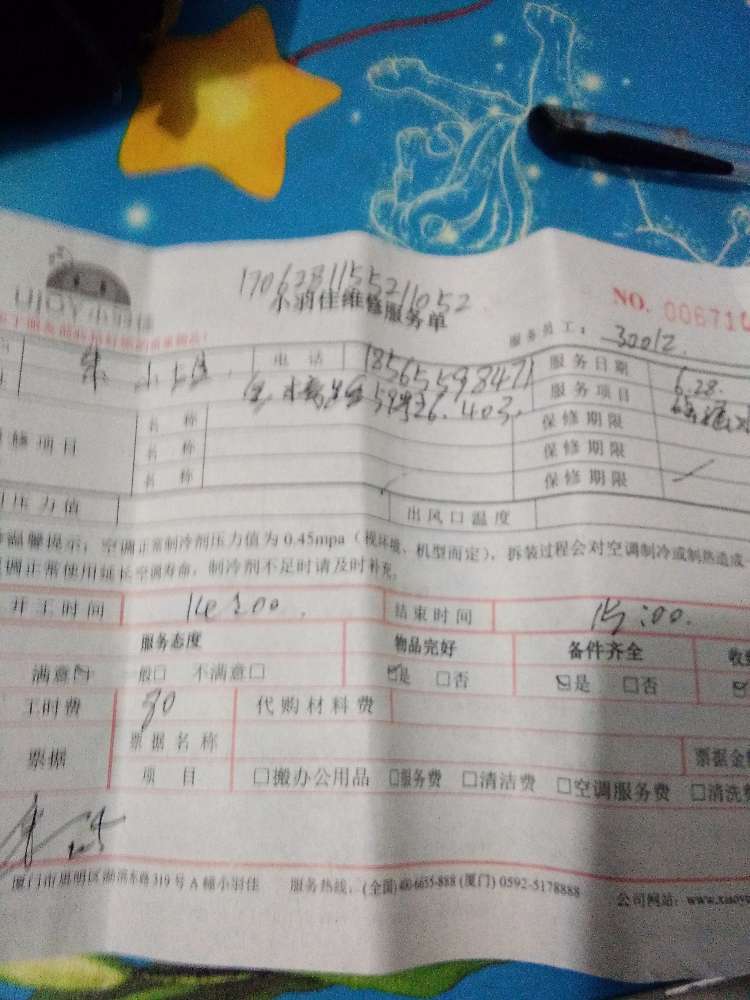 170628115521052
小羽佳维修服务单
NO. 006710
服务员工: 30012.
电 话 18565598471 服务日期 6.28.
59号26.403. 服务项目
修项目 名 称 保修期限
名 称 保修期限
名 称 保修期限
压力值 出风口温度
温馨提示:空调正常制冷剂压力值为0.45mpa(视环境、机型而定),拆装过程会对空调制冷或制热造成
调正常使用延长空调寿命,制冷剂不足时请及时补充。
开工时间 14:00. 结束时间 15:00.
服务态度 物品完好 备件齐全
满意 般□ 不满意□ 是 □否 是 □否
工时费 90 代购材料费
票据 票据名称 票据金
项 目 □搬办公用品 □服务费 □清洁费 □空调服务费 □清洗
厦门市思明区湖滨东路319号A幢小羽佳 服务热线:(全国)400-6655-888(厦门)0592-5178888 公司网站:www.xiaoyu